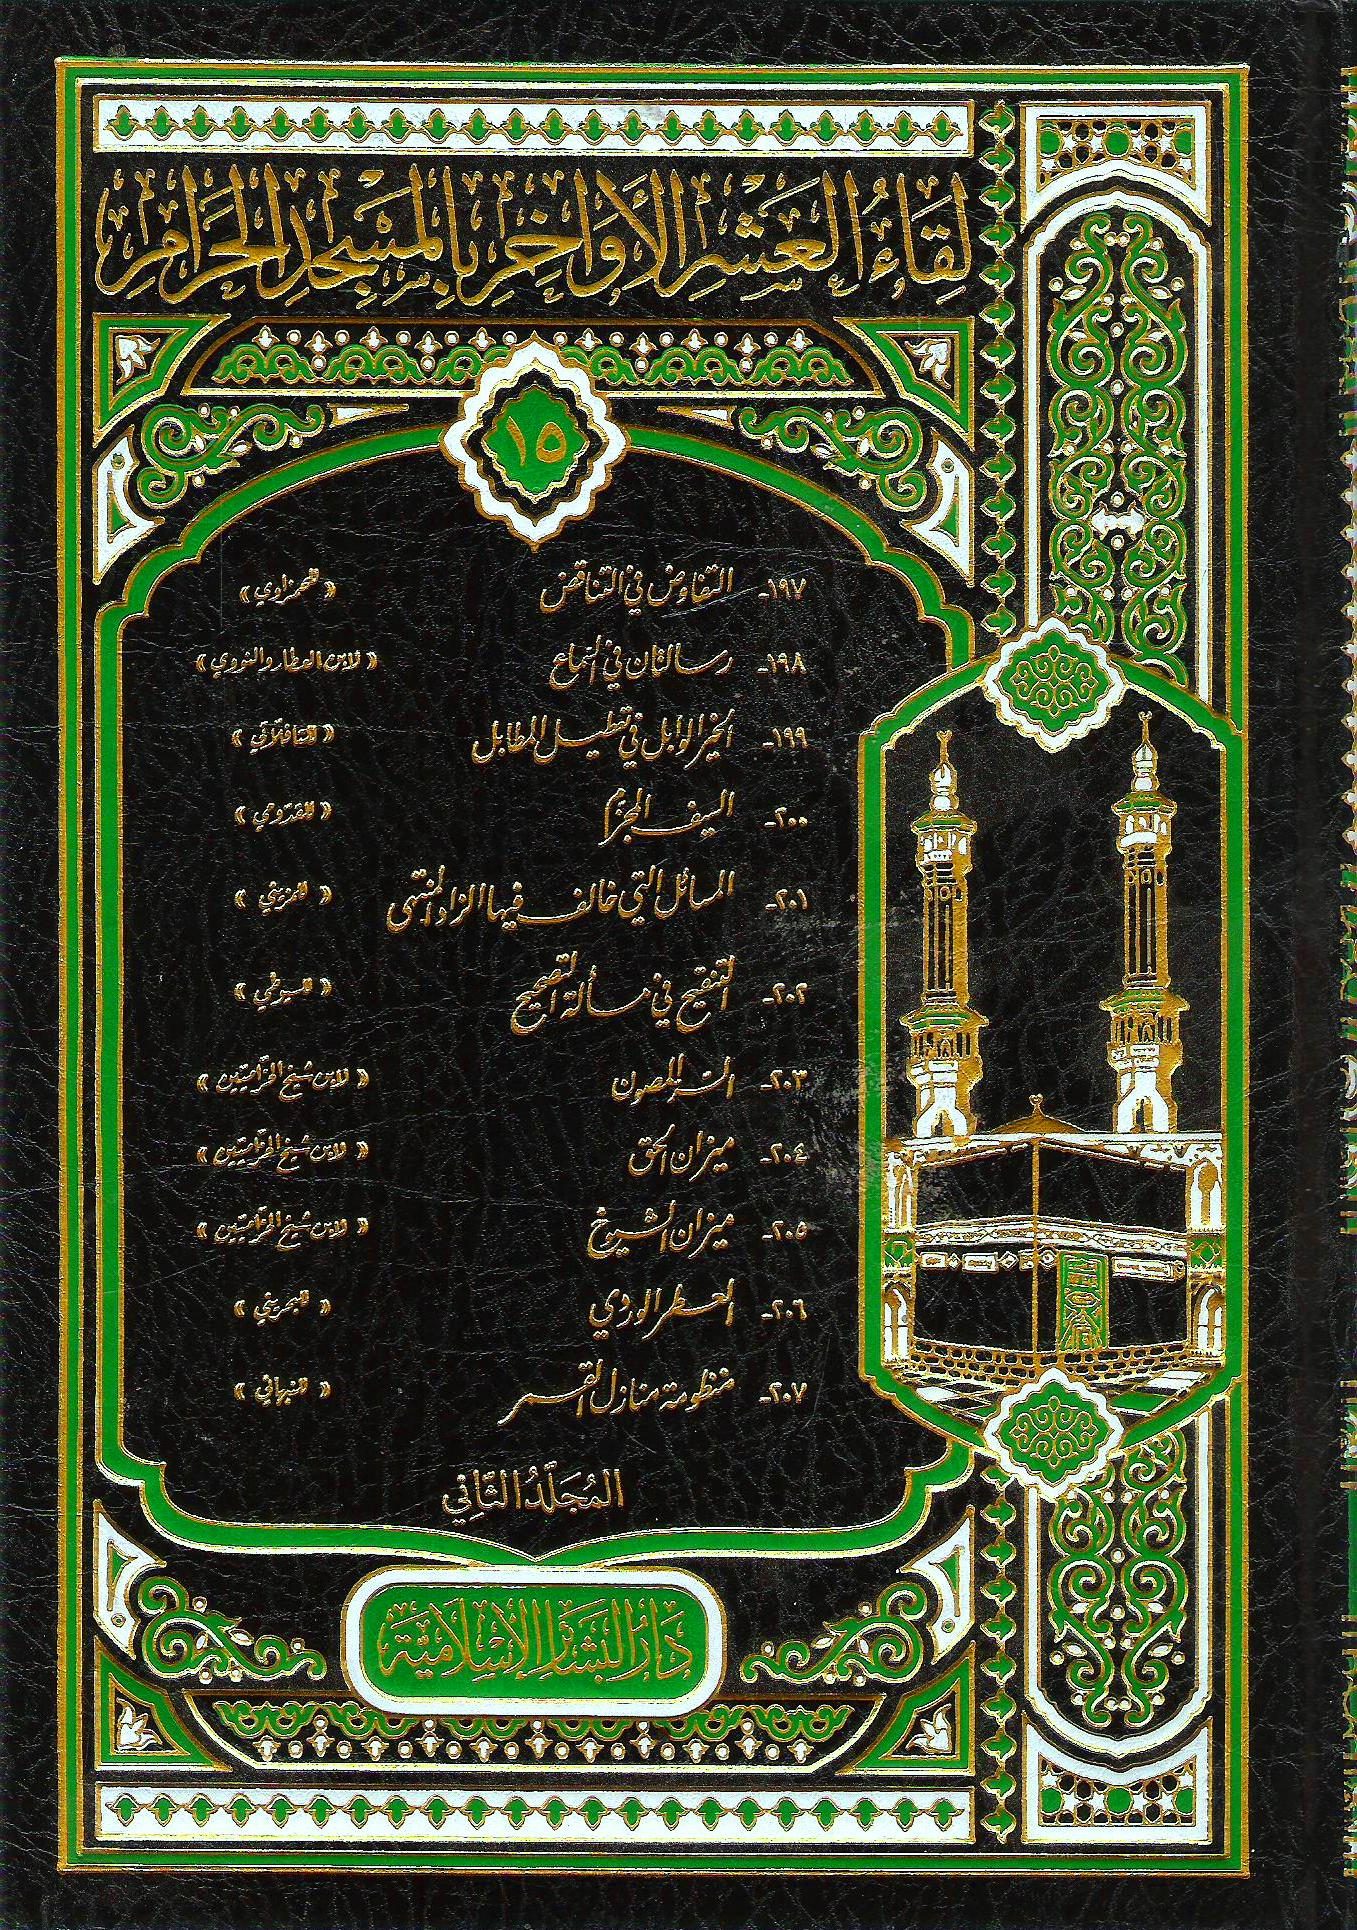 لِقَاءُ العَشْرِ الأَوَاخِرِ بِالمَسْجِدِ الحَرَامِ
١٥
١٩٧- التفاوض في التناقض « للحمزاوي »
١٩٨- رسالتان في السماع « لابن العطار والنووي »
١٩٩- الخير الوابل في تعطيل المطابل « للتافلاتي »
٢٠٠- السيف المجزم « للقدومي »
٢٠١- المسائل التي خالف فيها الزاد المنتهى « للمزيني »
٢٠٢- التنقيح في مسألة التصحيح « للسيوطي »
٢٠٣- السر المصون « لابن شيخ الحزاميين »
٢٠٤- ميزان الحق « لابن شيخ الحزاميين »
٢٠٥- ميزان الشيوخ « لابن شيخ الحزاميين »
٢٠٦- العطر الوردي « للبحريني »
٢٠٧- منظومة منازل القمر « للنبهاني »
المُجَلَّدُ الثَّانِي
دَارُ البَشَائِرِ الإِسْلَامِيَّةِ